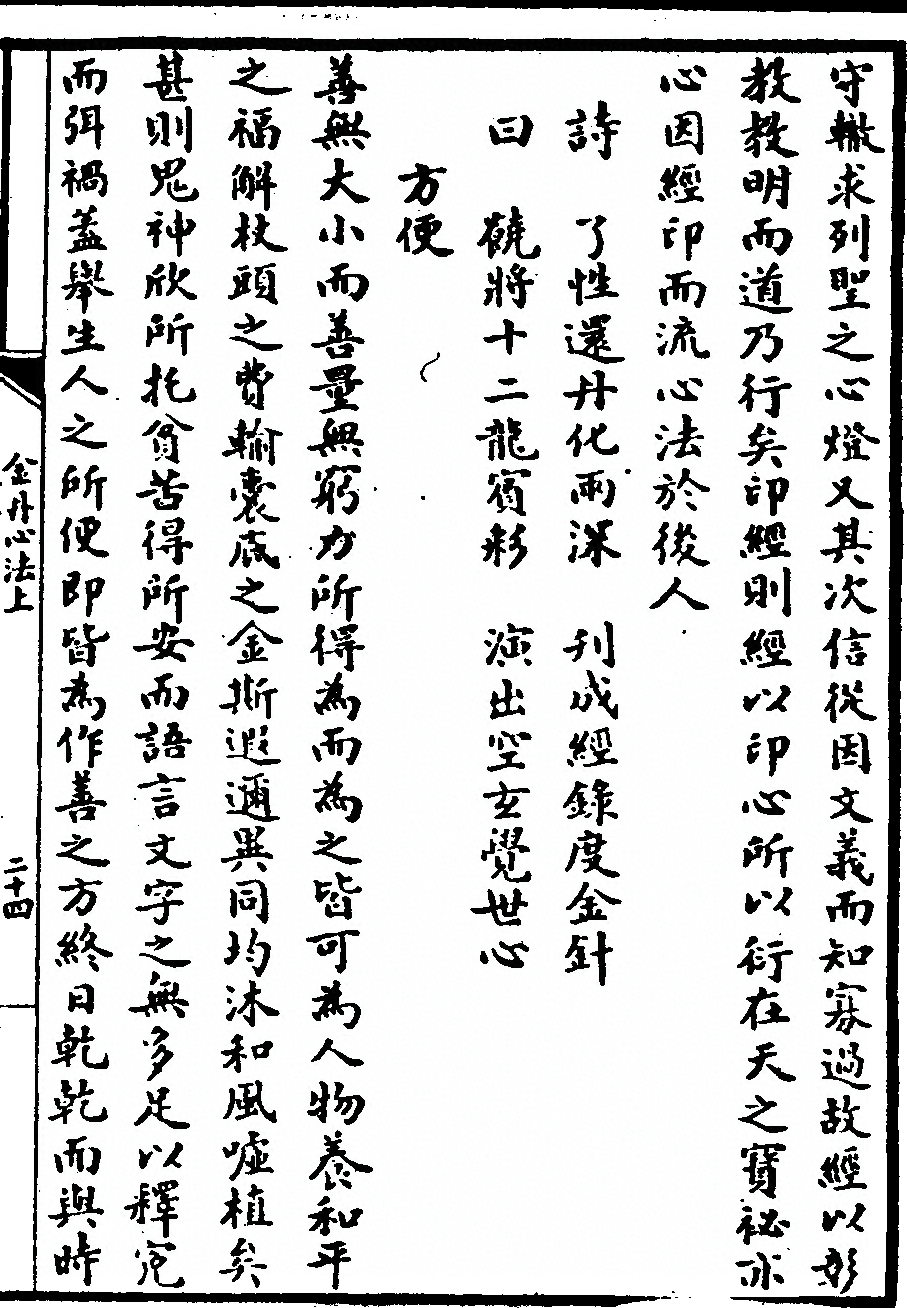 守轍求列聖之心燈又其次信從因文義而知寡過故經以彰
教教明而道乃行矣印經則經以印心所以衍在天之寶祕亦
心因經印而流心法於後人
詩　了性還丹化雨深　刊成經錄度金針
曰　饒將十二龍賓彩　演出空玄覺世心
方便
善無大小而善量無窮力所得為而為之皆可為人物養和平
之福解杖頭之費輸囊底之金斯遐邇異同均沐和風噓植矣
甚則鬼神欣所托貧苦得所安而語言文字之無多足以釋冤
而弭禍蓋舉生人之所便即皆為作善之方終日乾乾而與時
金丹心法上
二十四